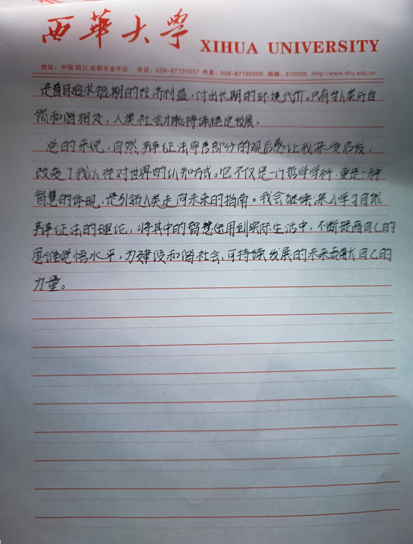 西華大学 XIHUA UNIVERSITY
地址：中国.四川.成都市金牛区 电话：028-87720037 传真：028-87720200 邮编：610039 http://www.xhu.edu.cn
是盲目追求短期的经济利益，付出长期的环境代价。只有当人类与自
然和谐相处，人类社会才能持续稳定发展。
总的来说，自然辩证法中各部分的观后感让我深受启发，
改变了我以往对世界的认知方式。它不仅是一门哲学学科，更是一种
智慧的体现，是引领人类走向未来的指南。我会继续深入学习自然
辩证法的理论，将其中的智慧运用到实际生活中，不断提高自己的
思维觉悟水平，为建设和谐社会，可持续发展的未来贡献自己的
力量。